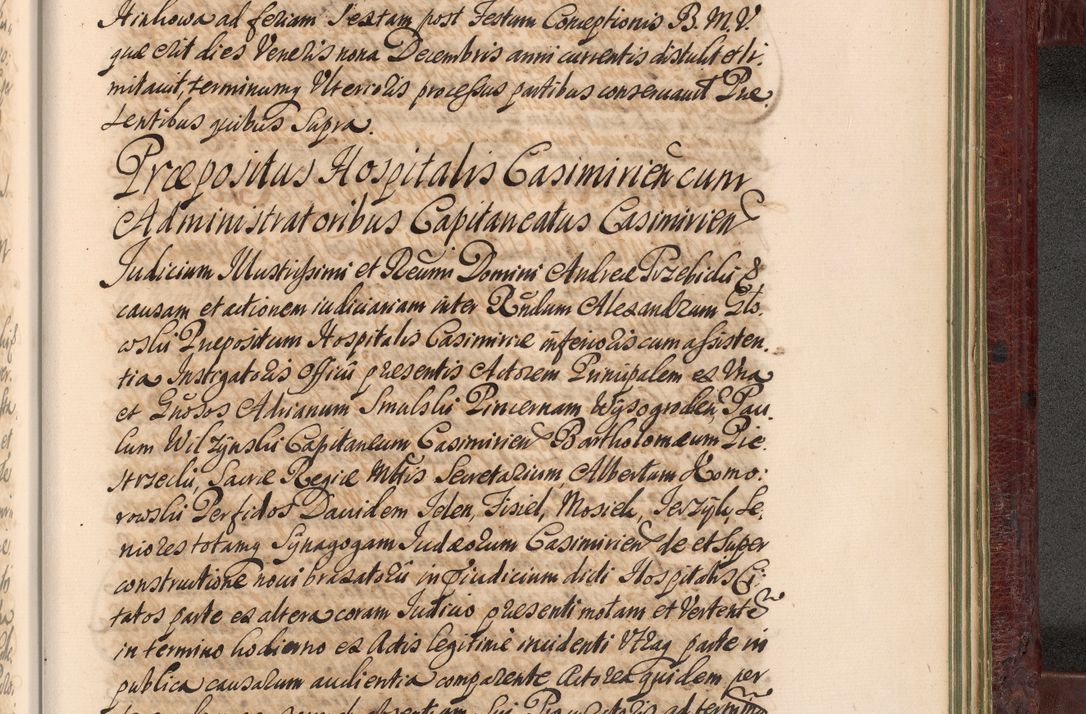 Hiakowa ad feriam Sextam post Festum Conceptionis B. M. V.
quæ erit dies Veneris nona Decembris anni currentis distulit et li-
mitavit, terminumq Ulterioris processus partibus conservavit Præ
sentibus quibus Supra.
Præpositus Hospitalis Casimirien cum
Administratoribus Capitaneatus Casimirien
Judicium Illustrissimi et Reumi Domini Andreæ Trzebicki &
causam et actionem iudiciariam inter Rndum Alexandrum Glo-
wski Præpositum Hospitalis Casimiriæ inferioris cum assisten-
tia Instigatoris Officii præsentis Actorem Principalem ex Una
et Gnosos Adrianum Smulski Pincernam Wysogroden, Pau-
lum Wilzynski Capitaneum Casimirien Bartholomæum Pie-
strzecki, Sacræ Regiæ Mttis Secretarium Albertum Komo:
rowski Perfidos Davidem Jelen, Fisiel, Mosiek, Jerzyk, Se-
niores totamq Synagogam Judæorum Casimirien de et super
constructione novi braxatorii in præiudicium dicti Hospitalis Ci-
tatos parte ex altera coram Judicio præsenti motam et Vertenté
in termino hodierno ex Actis legitime incidenti Utraq parte in
publica causarum audientia comparente Actorea quidem per